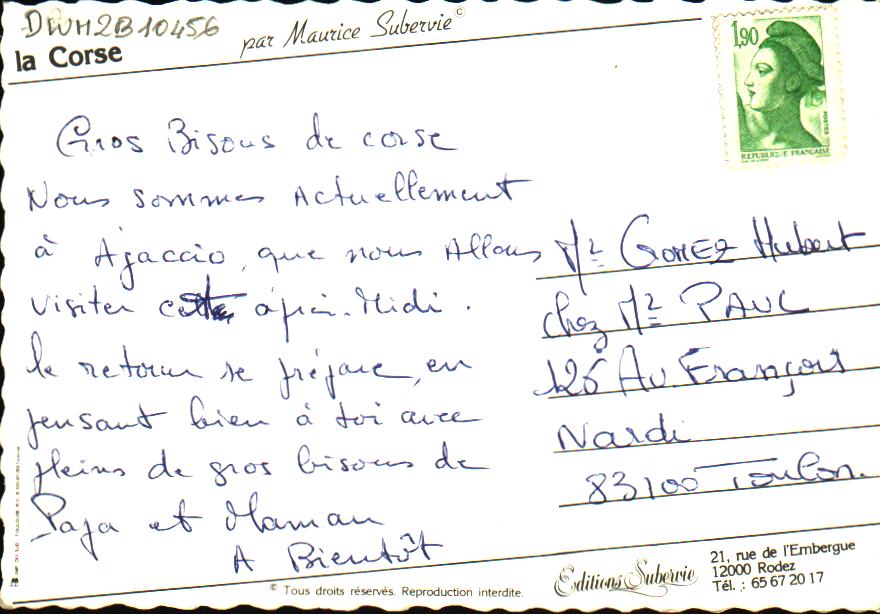 DWH2B10456
la Corse
par Maurice Subervie ©
1,90
POSTES
REPUBLIQUE FRANÇAISE
Gros Bisous de corse
Nous sommes Actuellement
à Ajaccio, que nous Allons
visiter cette après-Midi.
le retour se prépare, en
pensant bien à toi avec
pleins de gros bisous de
Papa et Maman
A Bientôt
Mr GOMEZ Hubert
chez Mr PAUL
126 Av. François
Nardi
83100 Toulon.
© Tous droits réservés. Reproduction interdite.
Editions Subervie
21, rue de l'Embergue
12000 Rodez
Tél. : 65 67 20 17